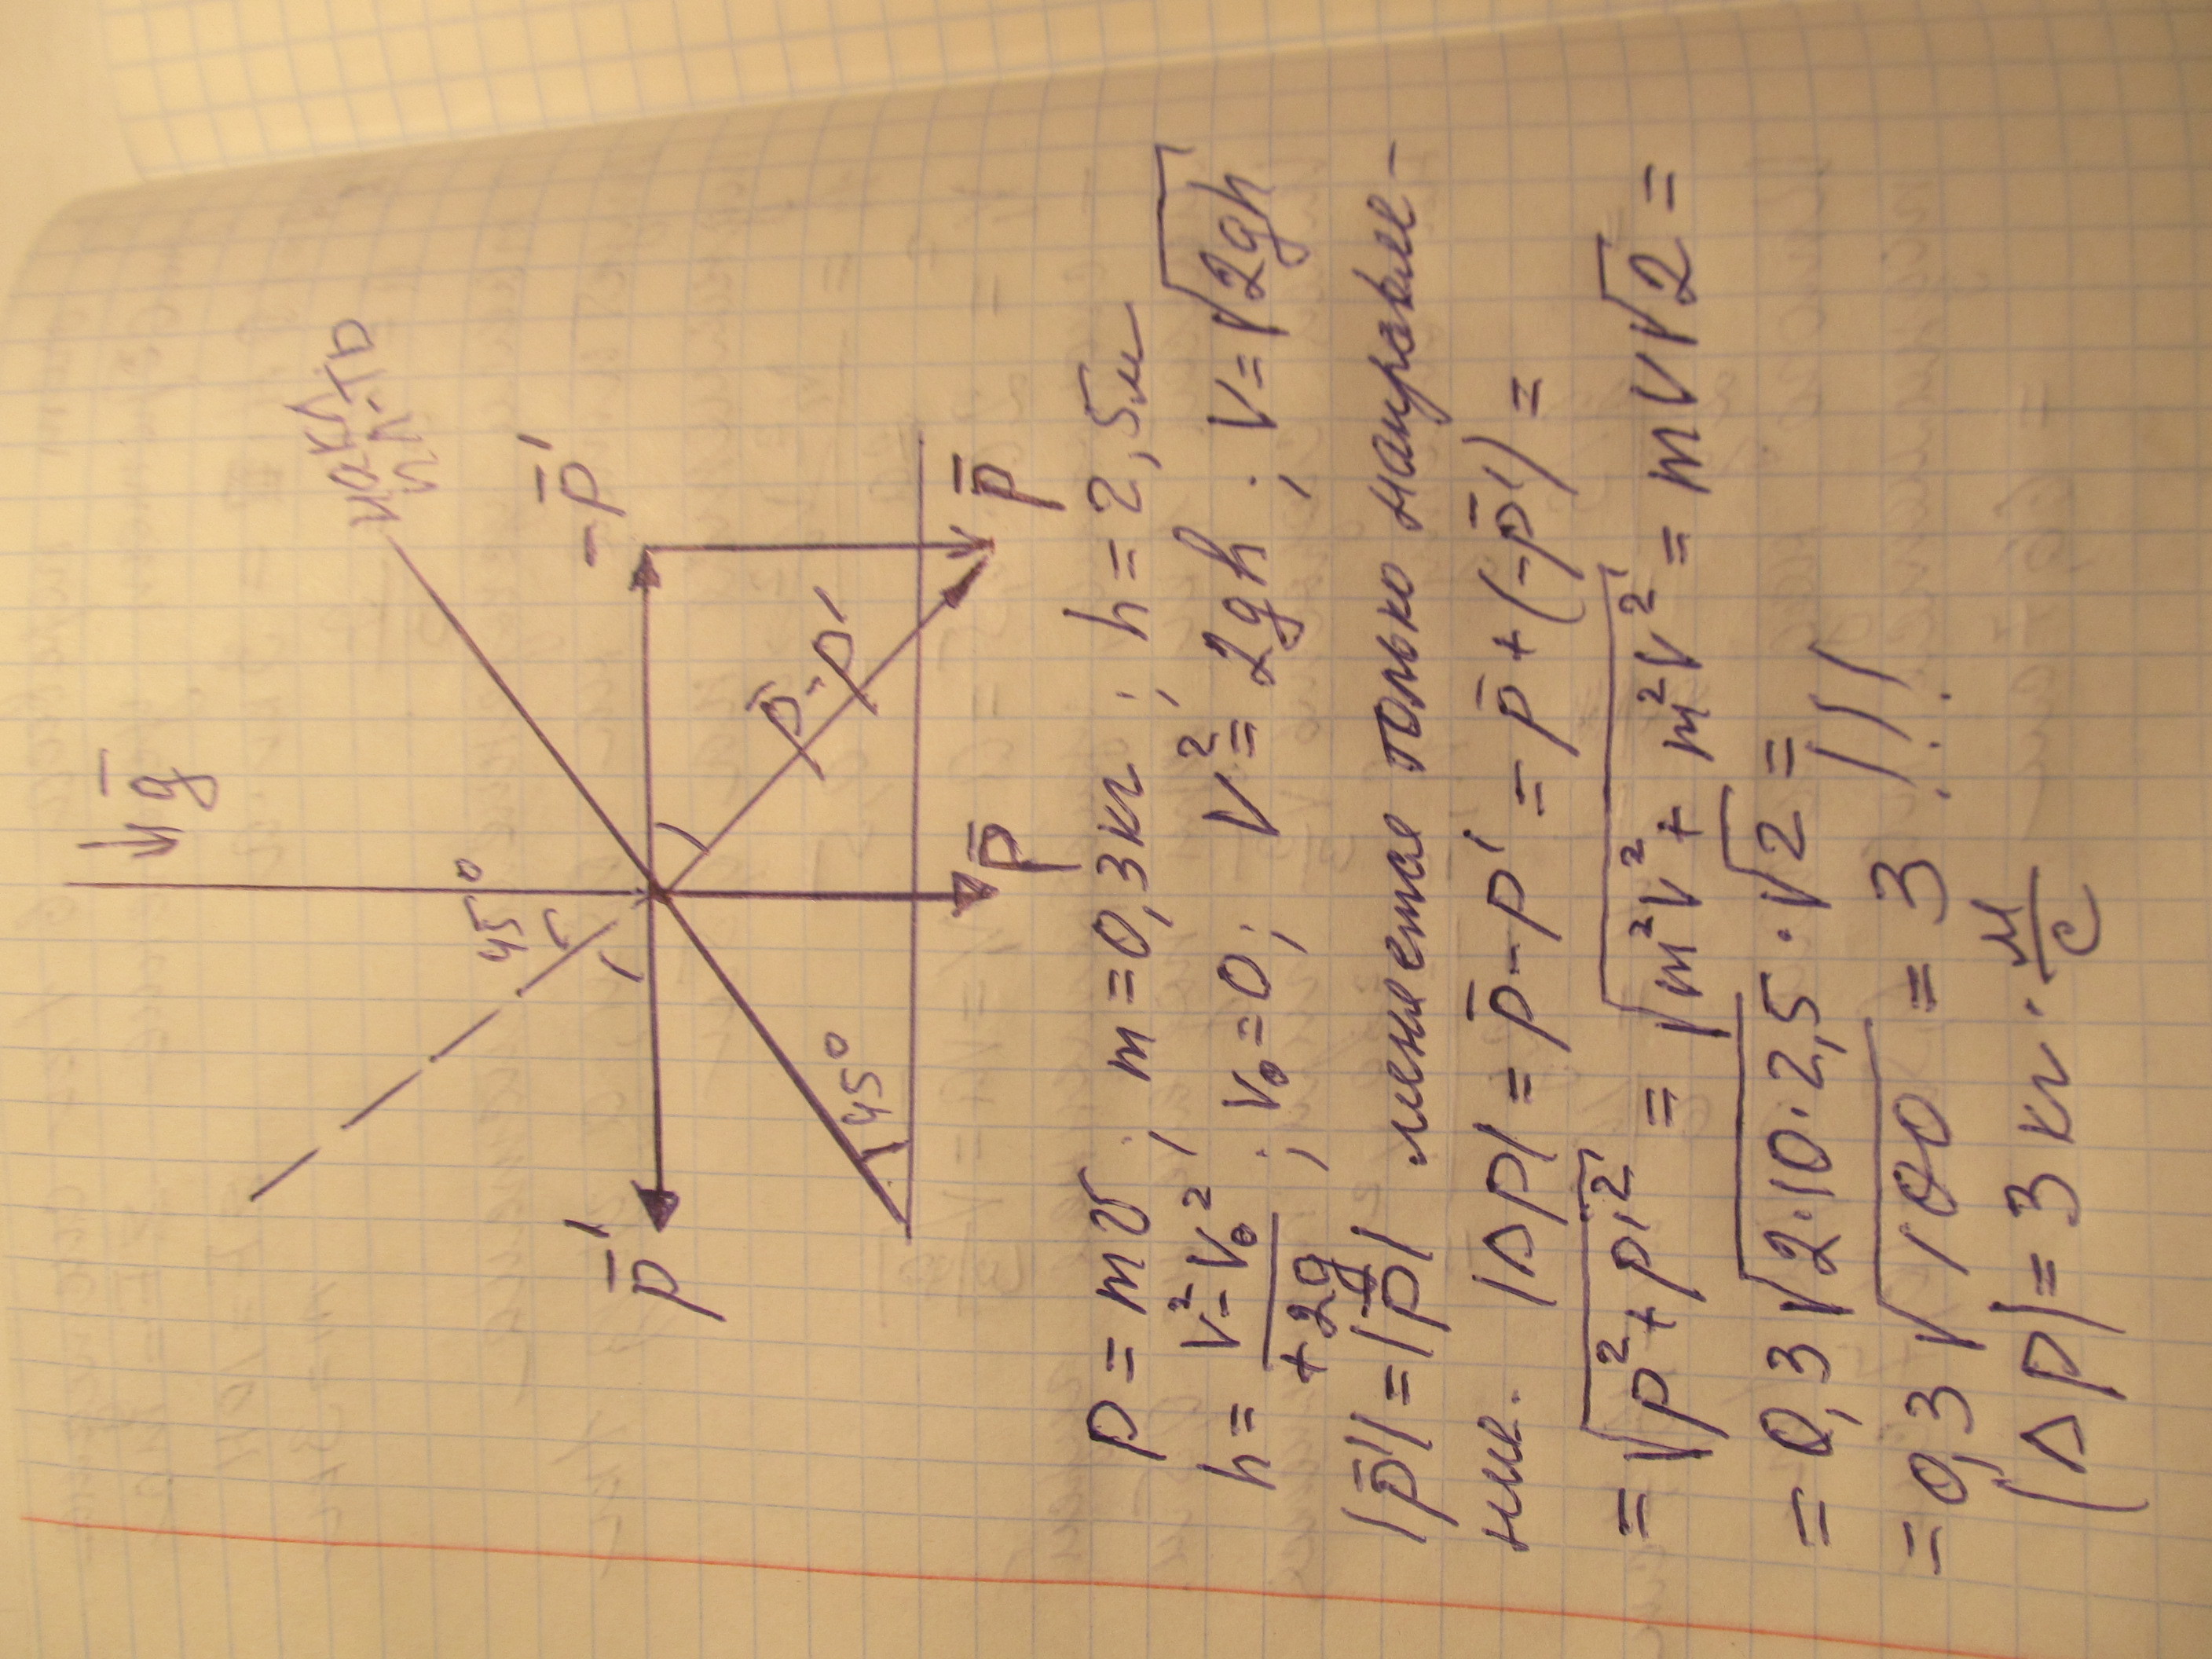 g̅
накл
пл-ТЬ
45°
p̅'
-p̅'
p̅-p̅'
45°
p̅
p̅
p = mv; m = 0,3 кг; h = 2,5м
h = (v²-v₀²)/(+2g); v₀ = 0; v² = 2gh; v = √(2gh)
|p̅'| = |p̅| меняется только направле-
ние. |Δp| = p̅ - p' = p̅ + (-p̅') =
= √(p² + p'²) = √(m²v² + m²v²) = mv√2 =
= 0,3 √(2·10·2,5) · √2 =
= 0,3 √100 = 3 !!!
|Δp| = 3 кг · м/с